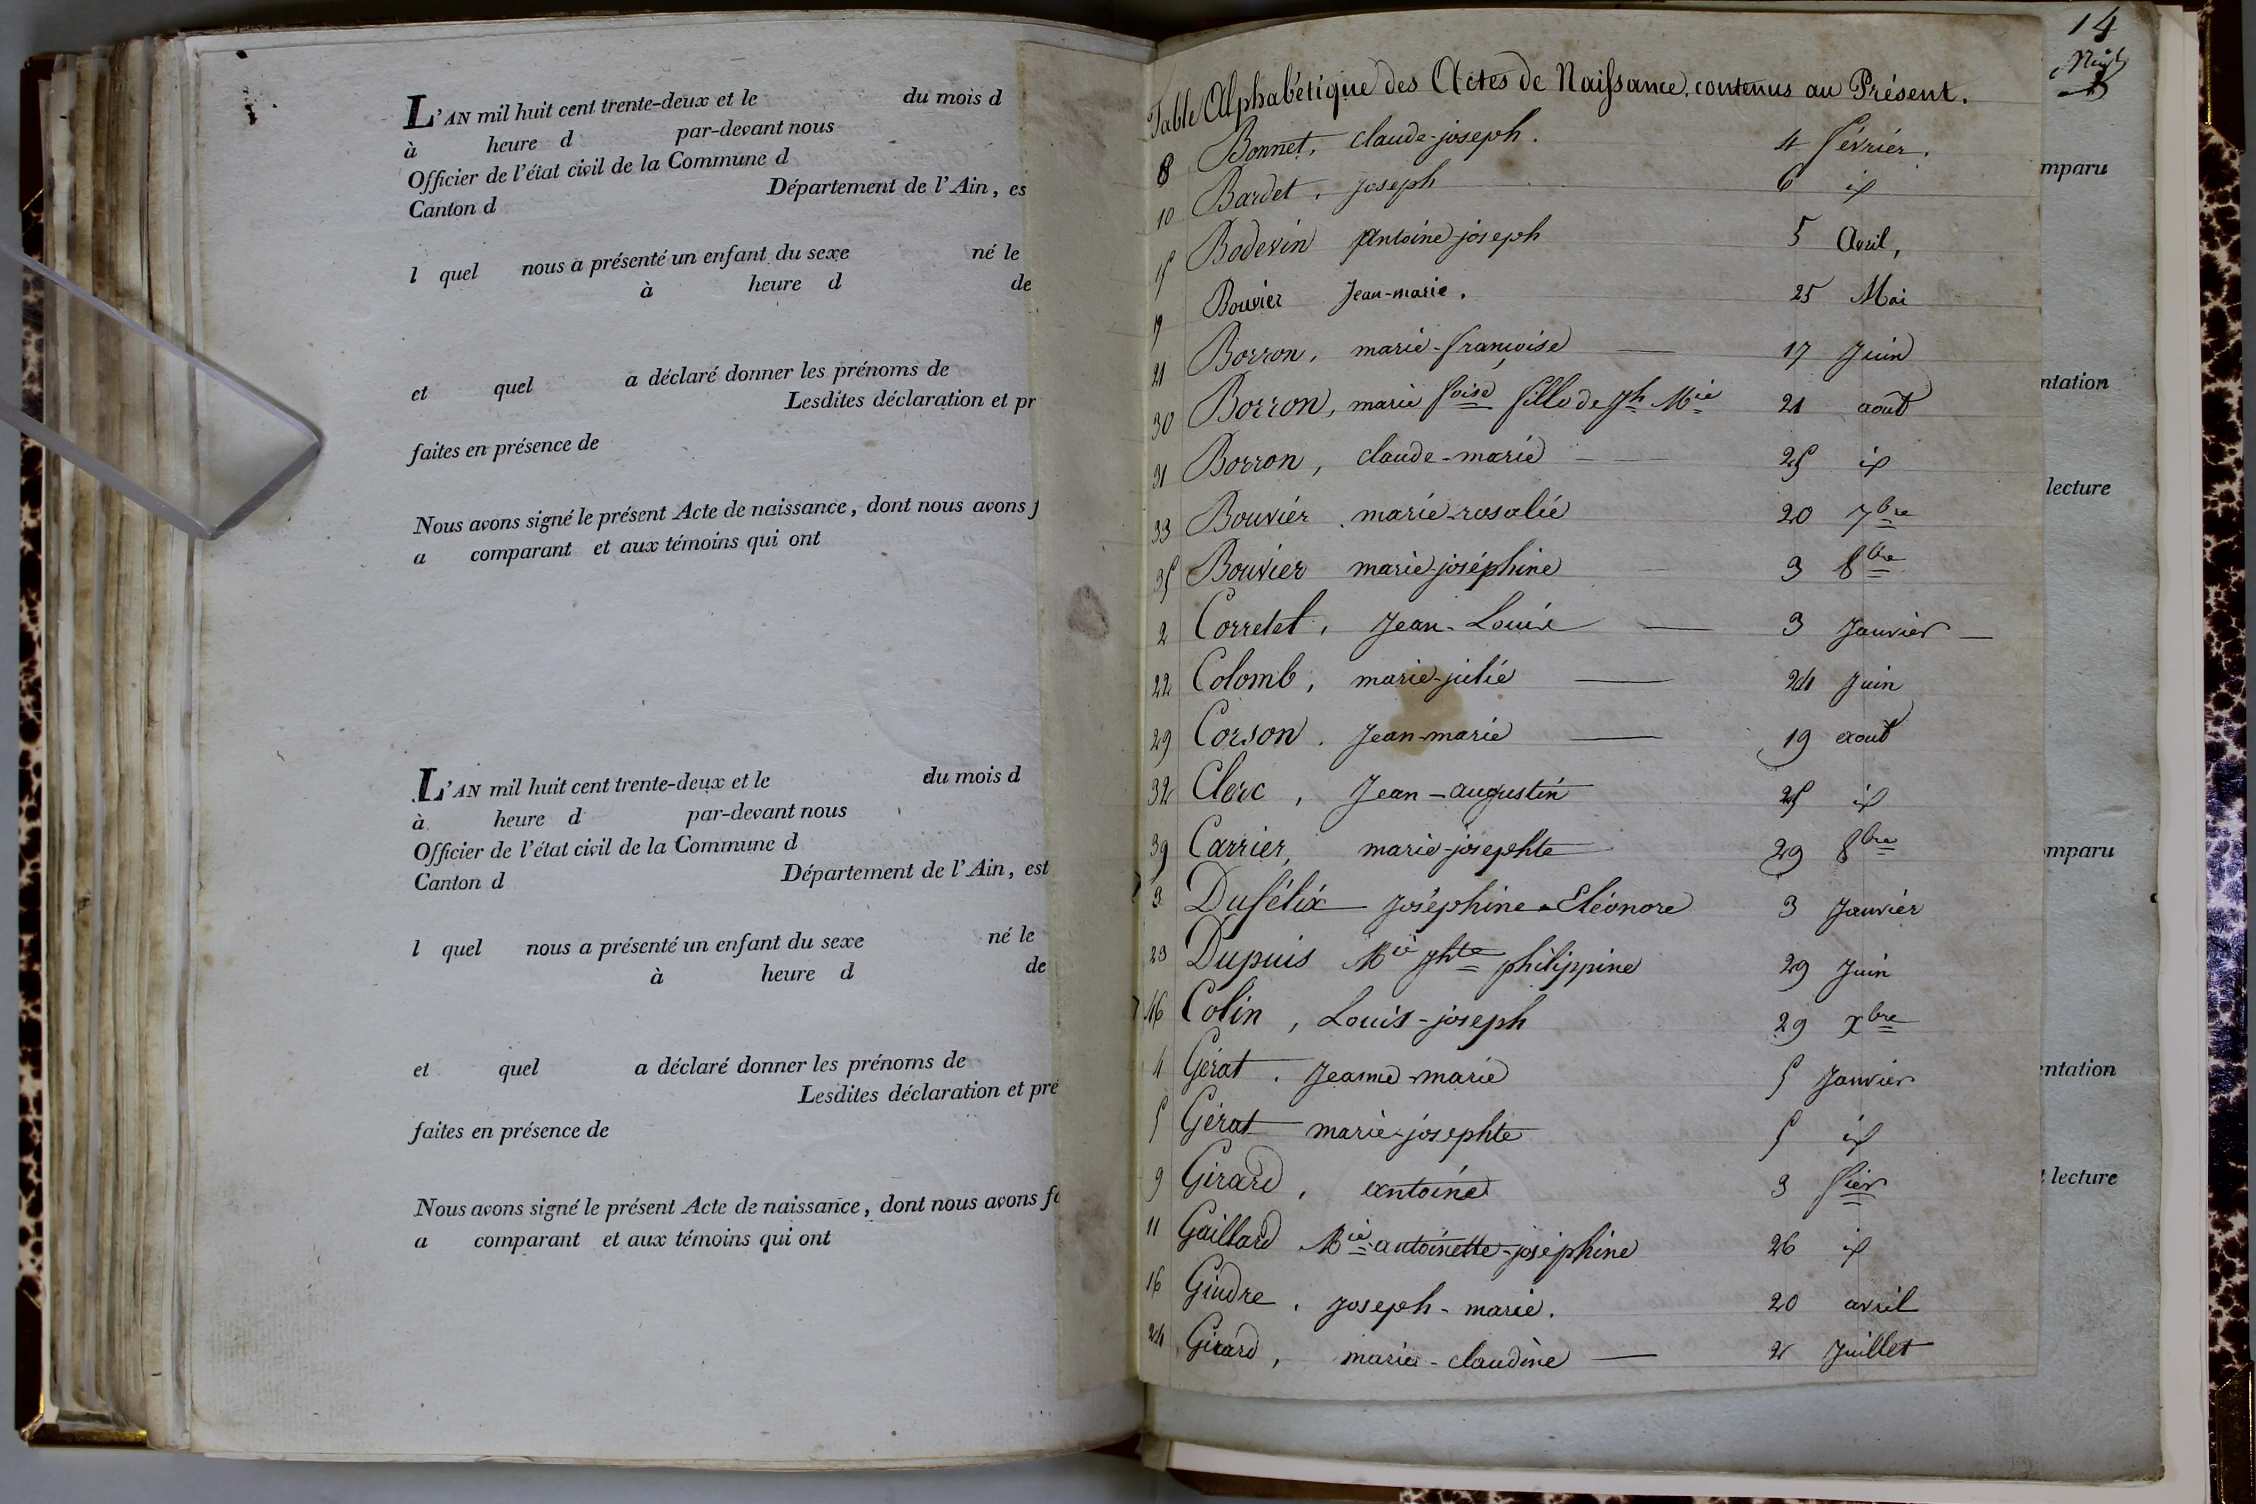 L'AN mil huit cent trente-deux et le du mois d
à heure d par-devant nous
Officier de l'état civil de la Commune d
Canton d Département de l'Ain, es
l quel nous a présenté un enfant du sexe né le
à heure d de
et quel a déclaré donner les prénoms de
Lesdites déclaration et pr
faites en présence de
Nous avons signé le présent Acte de naissance, dont nous avons f
a comparant et aux témoins qui ont
L'AN mil huit cent trente-deux et le du mois d
à heure d par-devant nous
Officier de l'état civil de la Commune d
Canton d Département de l'Ain, est
l quel nous a présenté un enfant du sexe né le
à heure d de
et quel a déclaré donner les prénoms de
Lesdites déclaration et pré
faites en présence de
Nous avons signé le présent Acte de naissance, dont nous avons fa
a comparant et aux témoins qui ont
14
Table Alphabétique des Actes de Naissance contenus au Présent.
8 Bonnet, claude-joseph. 4 février.
10 Bardet, joseph 6 id
15 Bodevin Antoine-joseph 5 Avril,
19 Bouvier Jean-marie. 25 Mai
21 Borron, marie-françoise 17 Juin
30 Borron, marie foise fille de Jh Mie 21 août
31 Borron, claude-marie 25 id
33 Bouvier marie-rosalie 20 7bre
35 Bouvier marie joséphine 3 8bre
2 Corretet, Jean-Louis 3 Janvier
22 Colomb, marie-julie 24 Juin
29 Corson. Jean-marie 19 août
32 Clerc, Jean-augustin 25 id
39 Carrier, marie-josephte 29 8bre
3 Dufélix Joséphine-Eléonore 3 Janvier
23 Dupuis Mie Jhte philippine 29 Juin
46 Colin, Louis-joseph 29 Xbre
4 Gérat. Jeanne-marie 5 Janvier
5 Gérat marie-josephte 5 id
9 Girard, antoine 3 fier
11 Gaillard Mie antoinette-joséphine 26 id
16 Gindre, joseph-marie. 20 avril
24 Girard, marie-claudine 2 Juillet
mparu
ntation
lecture
omparu
entation
lecture